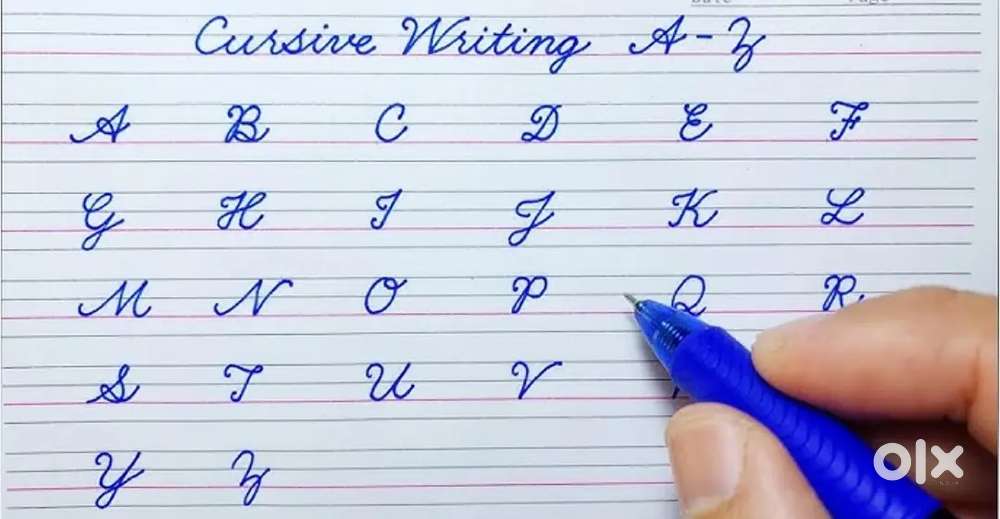 Cursive Writing A-Z
A B C D E F
G H I J K L
M N O P Q R
S T U V
Y Z
olx